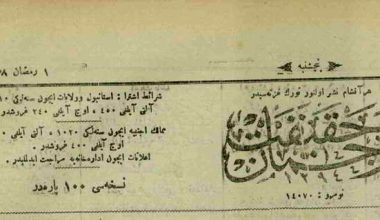 پنجشنبه
١ رمضان ٣٨
هر آقشام نشر اولنور تورك غزته‌سیدر
ترجمان حقیقت
نومرو : ١٤٠٧٠
شرائط اشترا : استانبول وولایات ایچون سنه‌لكی
آلتی آیلغی ٤٥٠ ، اوچ آیلغی ٢٤٠ غروشدر
ممالك اجنبیه ایچون سنه‌لكی ١٠٢٠ ، آلتی آیلغی
اوچ آیلغی ٤٠٠ غروشدر .
اعلانات ایچون اداره‌خانه‌یه مراجعت ایدلیدر
نسخه‌سی ١٠٠ پاره‌در